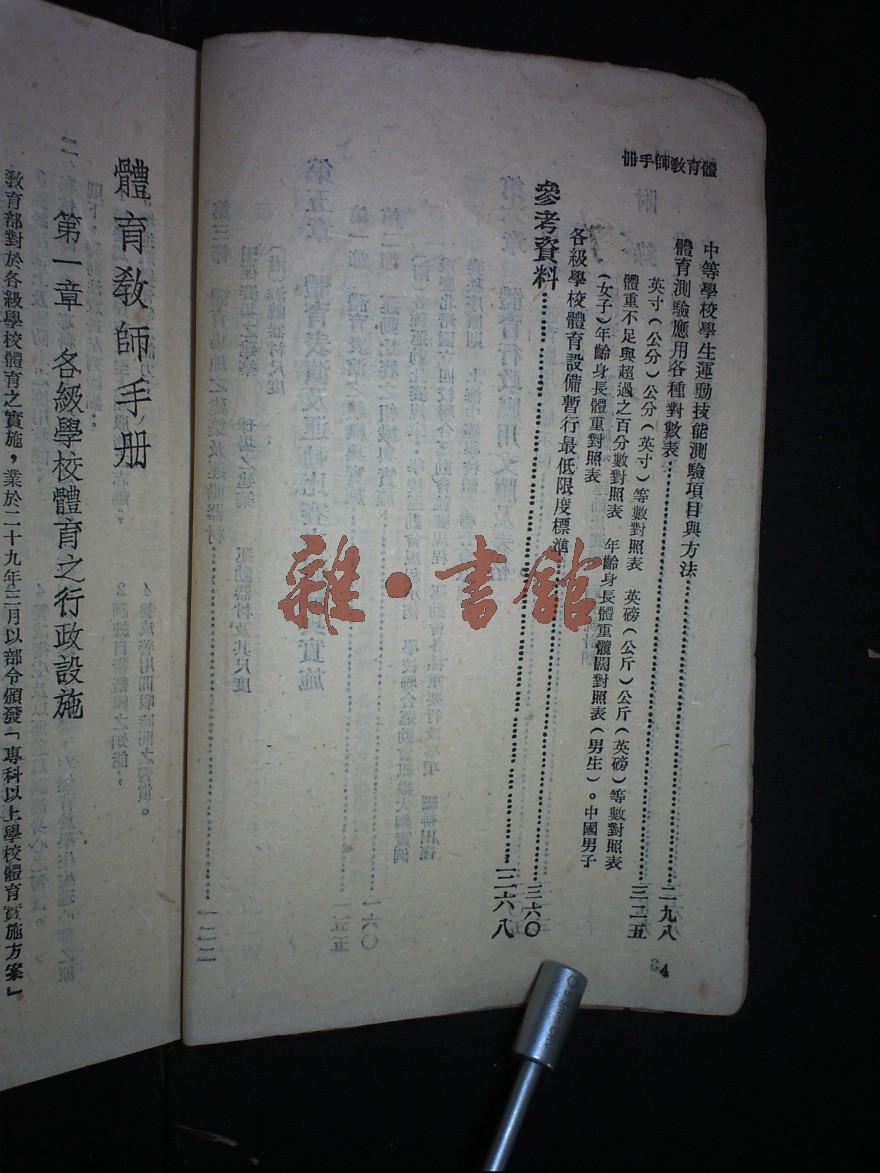 體育教師手冊
中等學校學生運動技能測驗項目與方法……二九八
體育測驗應用各種對數表……三二五
英寸(公分)公分(英寸)等數對照表　英磅(公斤)公斤(英磅)等數對照表
體重不足與超過之百分數對照表　年齡身長體重髖闊對照表(男生)。中國男子
(女子)年齡身長體重對照表
各級學校體育設備暫行最低限度標準……三六〇
參考資料……三六八
4
體育教師手册
第一章 各級學校體育之行政設施
二
教育部對於各級學校體育之實施，業於二十九年三月以部令頒發「專科以上學校體育實施方案」
雜·書館